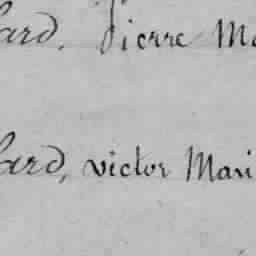 ard, Pierre Ma
ard, victor Mari